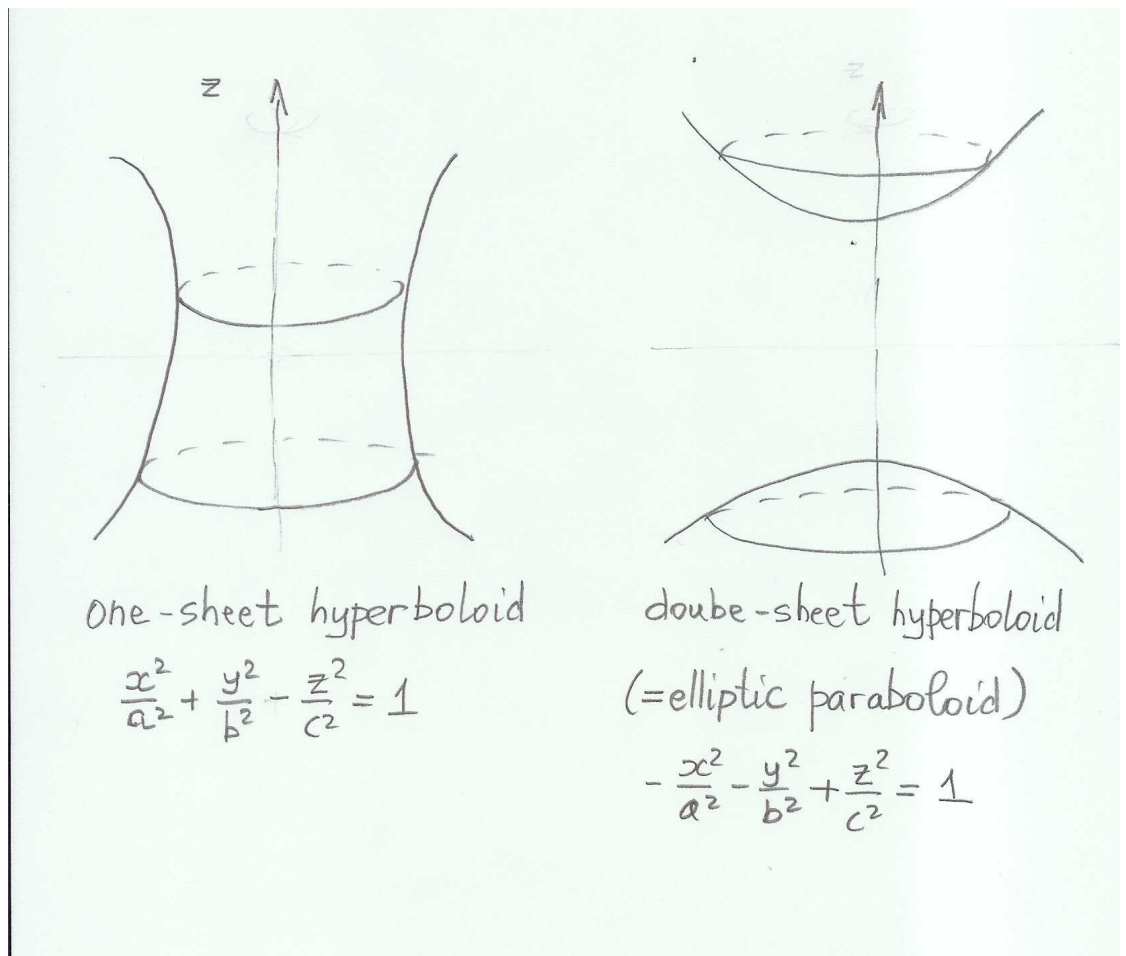 z
z
one-sheet hyperboloid
x²/a² + y²/b² - z²/c² = 1
doube-sheet hyperboloid
(=elliptic paraboloid)
- x²/a² - y²/b² + z²/c² = 1